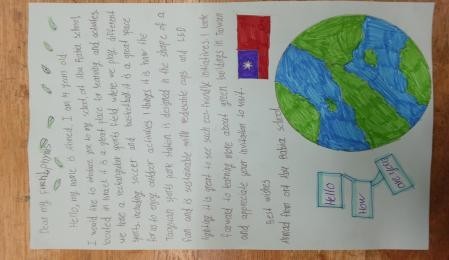 Dear my
Hello, my name is Ahmed, I am 14 years old
I would like to introduce you to my school, Abu Baker School,
located in Israel. It is a great place for learning and activities.
We have a rectangular sports field, where we play different
sports including soccer and basketball. It is a great space
for us to enjoy outdoor activities. I things it is how the
Taoyuan sports park station is designed in the shape of a
fan and is sustainable with redeable cups and LED
lighting. It is great to see such eco-friendly initiatives. I look
forward to learning more about green buildings in Taiwan
and appreciate your invitation to visit.
Best wishes
Ahmad from Abu Baker School
Hello
How
are you